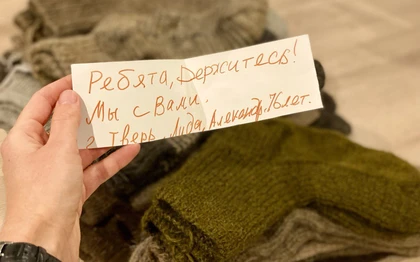 Ребята, держитесь!
Мы с Вами.
г. Тверь. Лида, Александр. 76 лет.